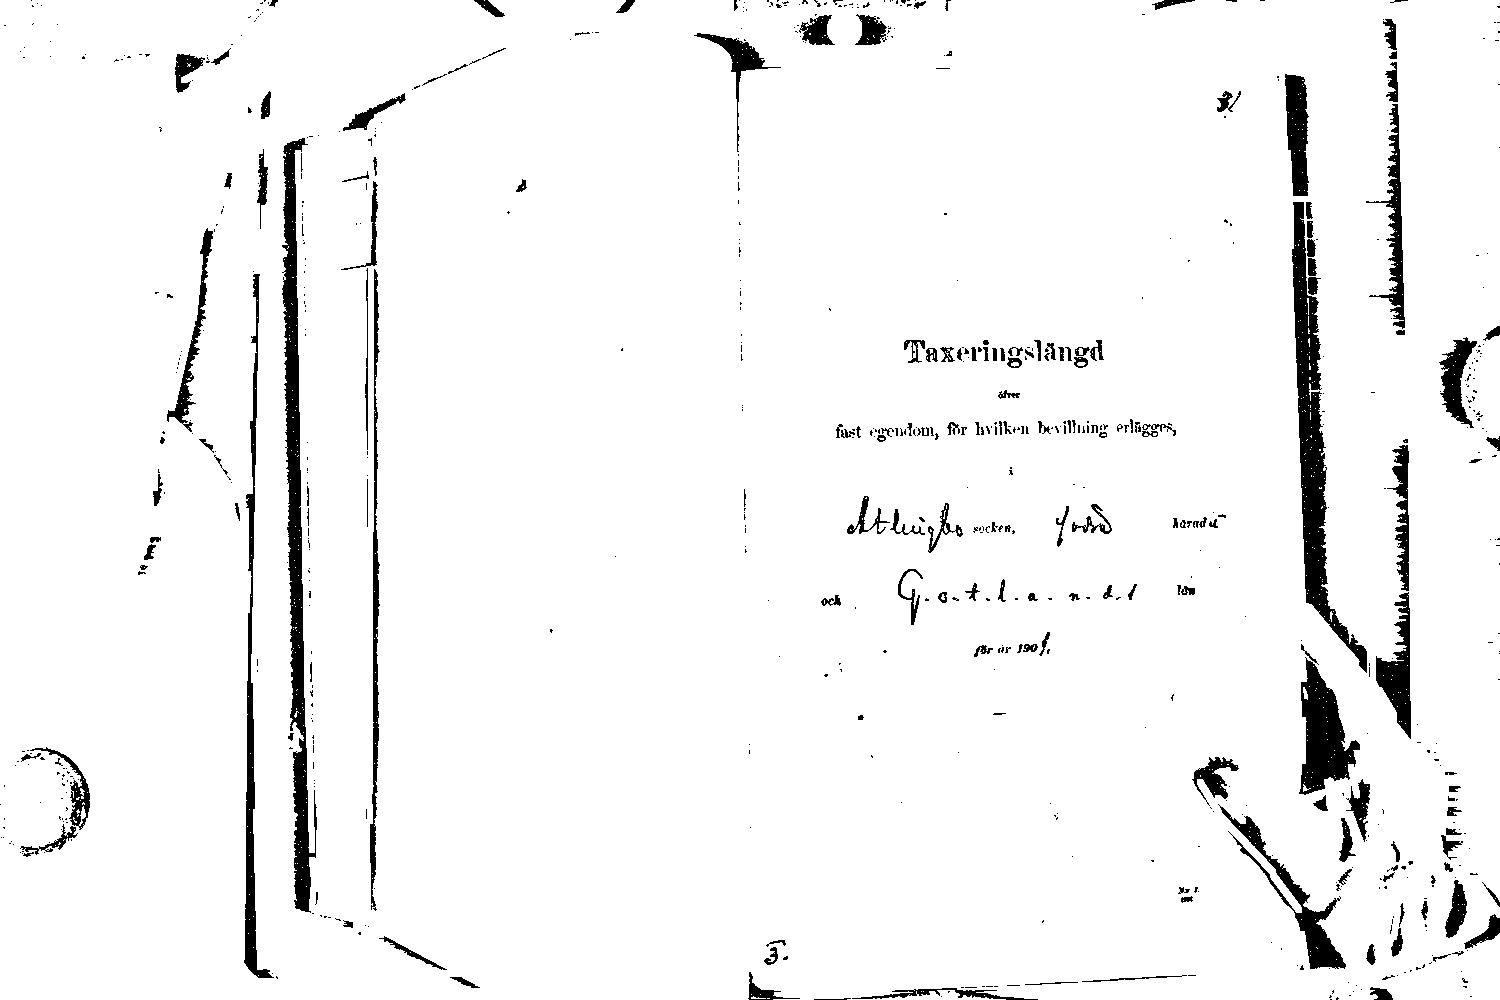 3/
Taxeringslängd
öfver
fast egendom, för hvilken bevillning erlägges,
i
Atlingbo socken, härad
och Gotlands län
för år 190
3.